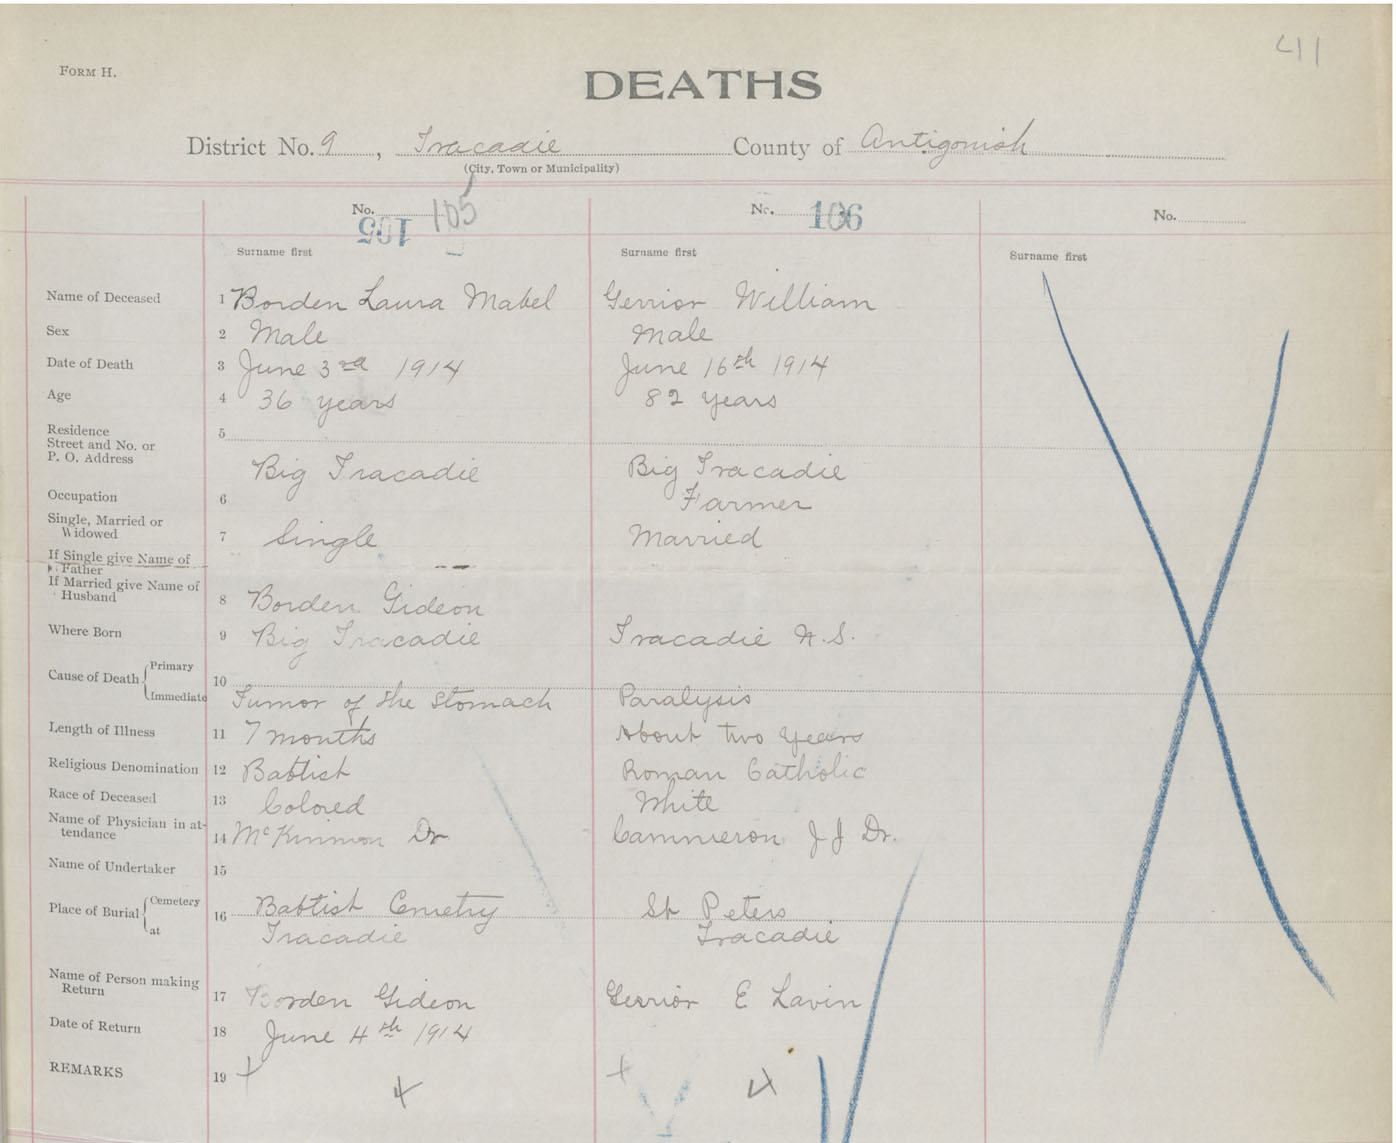 411
FORM H.
DEATHS
District No. 9, Tracadie County of Antigonish
(City, Town or Municipality)
No. 105 No. 106 No.
105
Surname first Surname first Surname first
Name of Deceased 1 Borden Laura Mabel Gerrior William
Sex 2 Male Male
Date of Death 3 June 3rd 1914 June 16th 1914
Age 4 36 years 82 years
Residence
Street and No. or
P. O. Address 5 Big Tracadie Big Tracadie
Occupation 6 Farmer
Single, Married or
Widowed 7 Single Married
If Single give Name of
Father
If Married give Name of
Husband 8 Borden Gideon
Where Born 9 Big Tracadie Tracadie N.S.
Cause of Death Primary
Immediate 10 Tumor of the Stomach Paralysis
Length of Illness 11 7 months About two years
Religious Denomination 12 Babtist Roman Catholic
Race of Deceased 13 Colored White
Name of Physician in at-
tendance 14 McKinnon Dr Cammeron J J Dr.
Name of Undertaker 15
Place of Burial Cemetery
at 16 Babtist Cemetry St Peters
Tracadie Tracadie
Name of Person making
Return 17 Borden Gideon Gerrior E Lavin
Date of Return 18 June 4th 1914
REMARKS 19 + 4 + 4